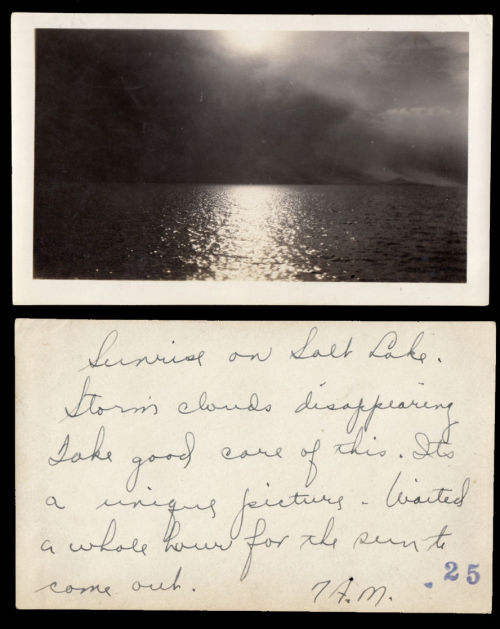 Sunrise on Salt Lake.
Storm clouds disappearing
Take good care of this. Its
a unique picture - Waited
a whole hour for the sun to
come out. 7 A.M. .25